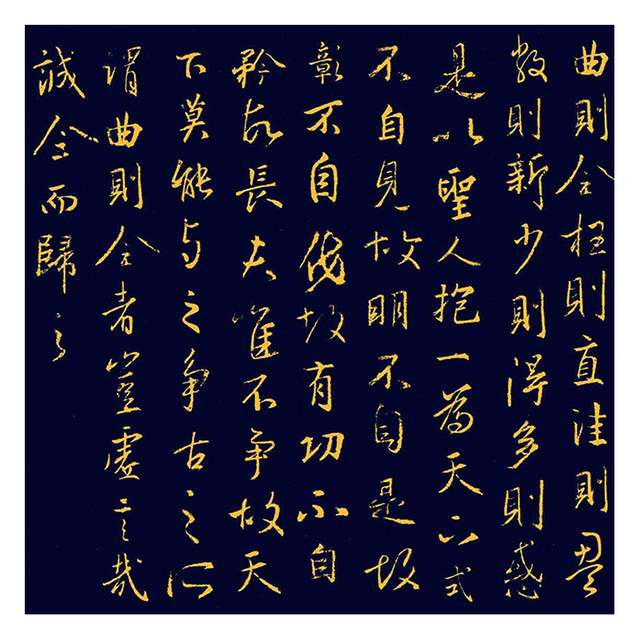 曲則全枉則直洼則盈
敝則新少則得多則惑
是以聖人抱一為天下式
不自見故明不自是故
彰不自伐故有功不自
矜故長夫唯不争故天
下莫能与之争古之所
謂曲則全者豈虛言哉
誠全而歸之